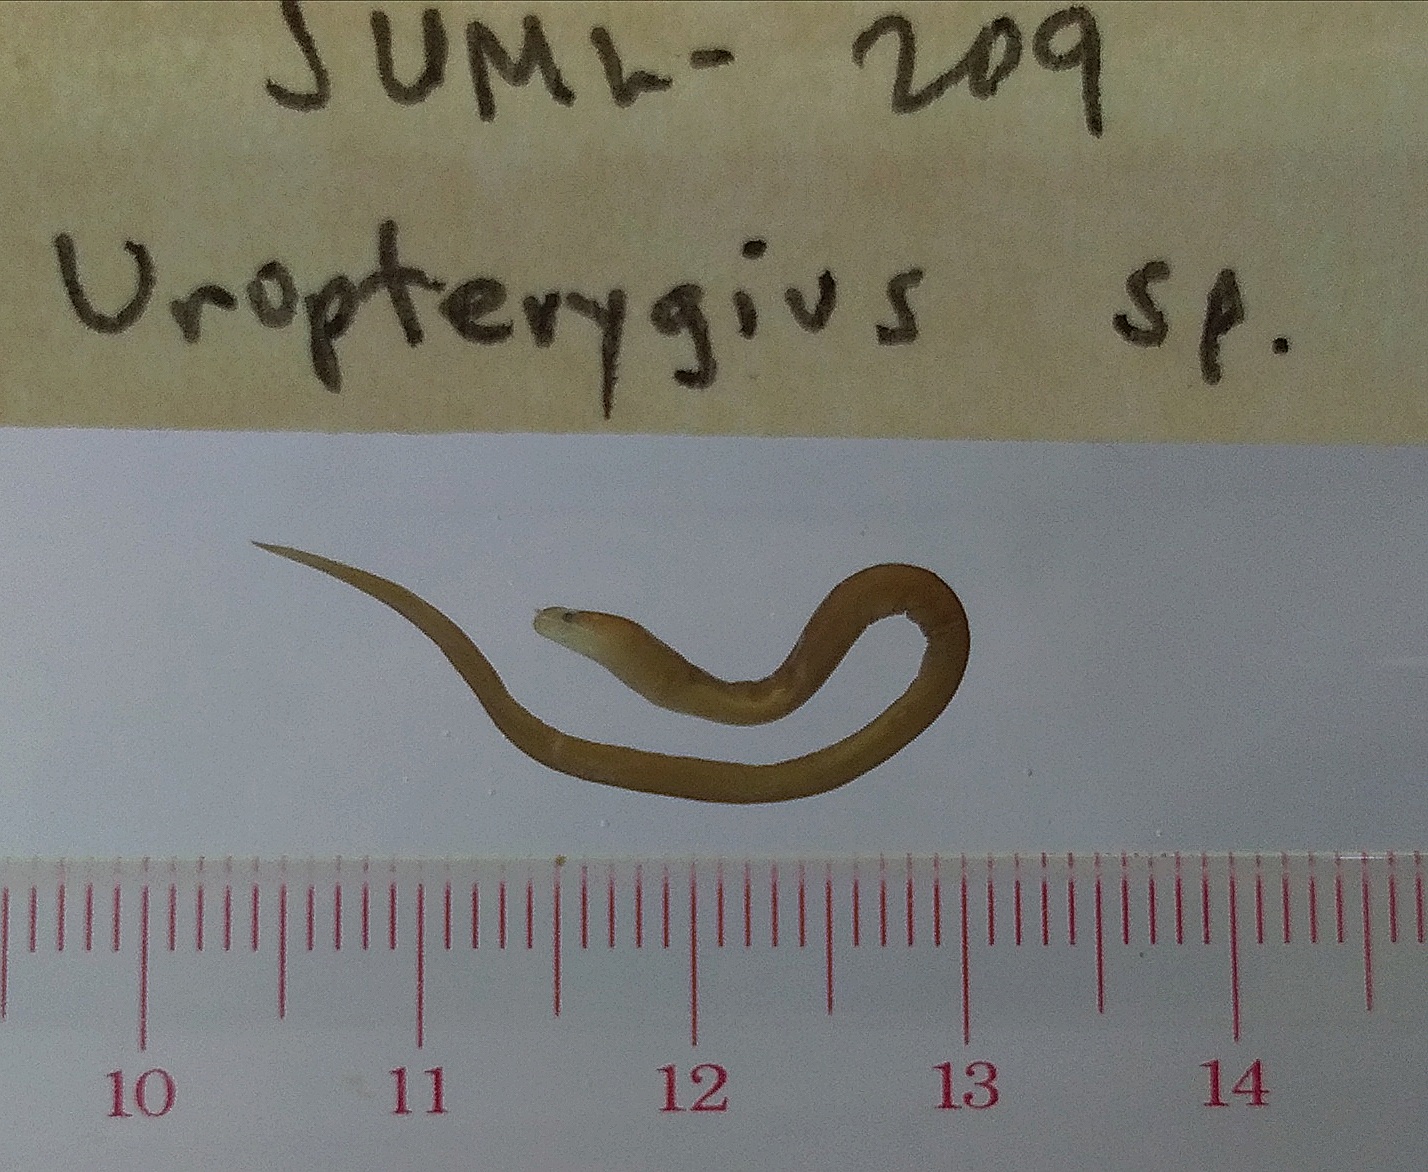 JUML-209
Uropterygius sp.
10 11 12 13 14